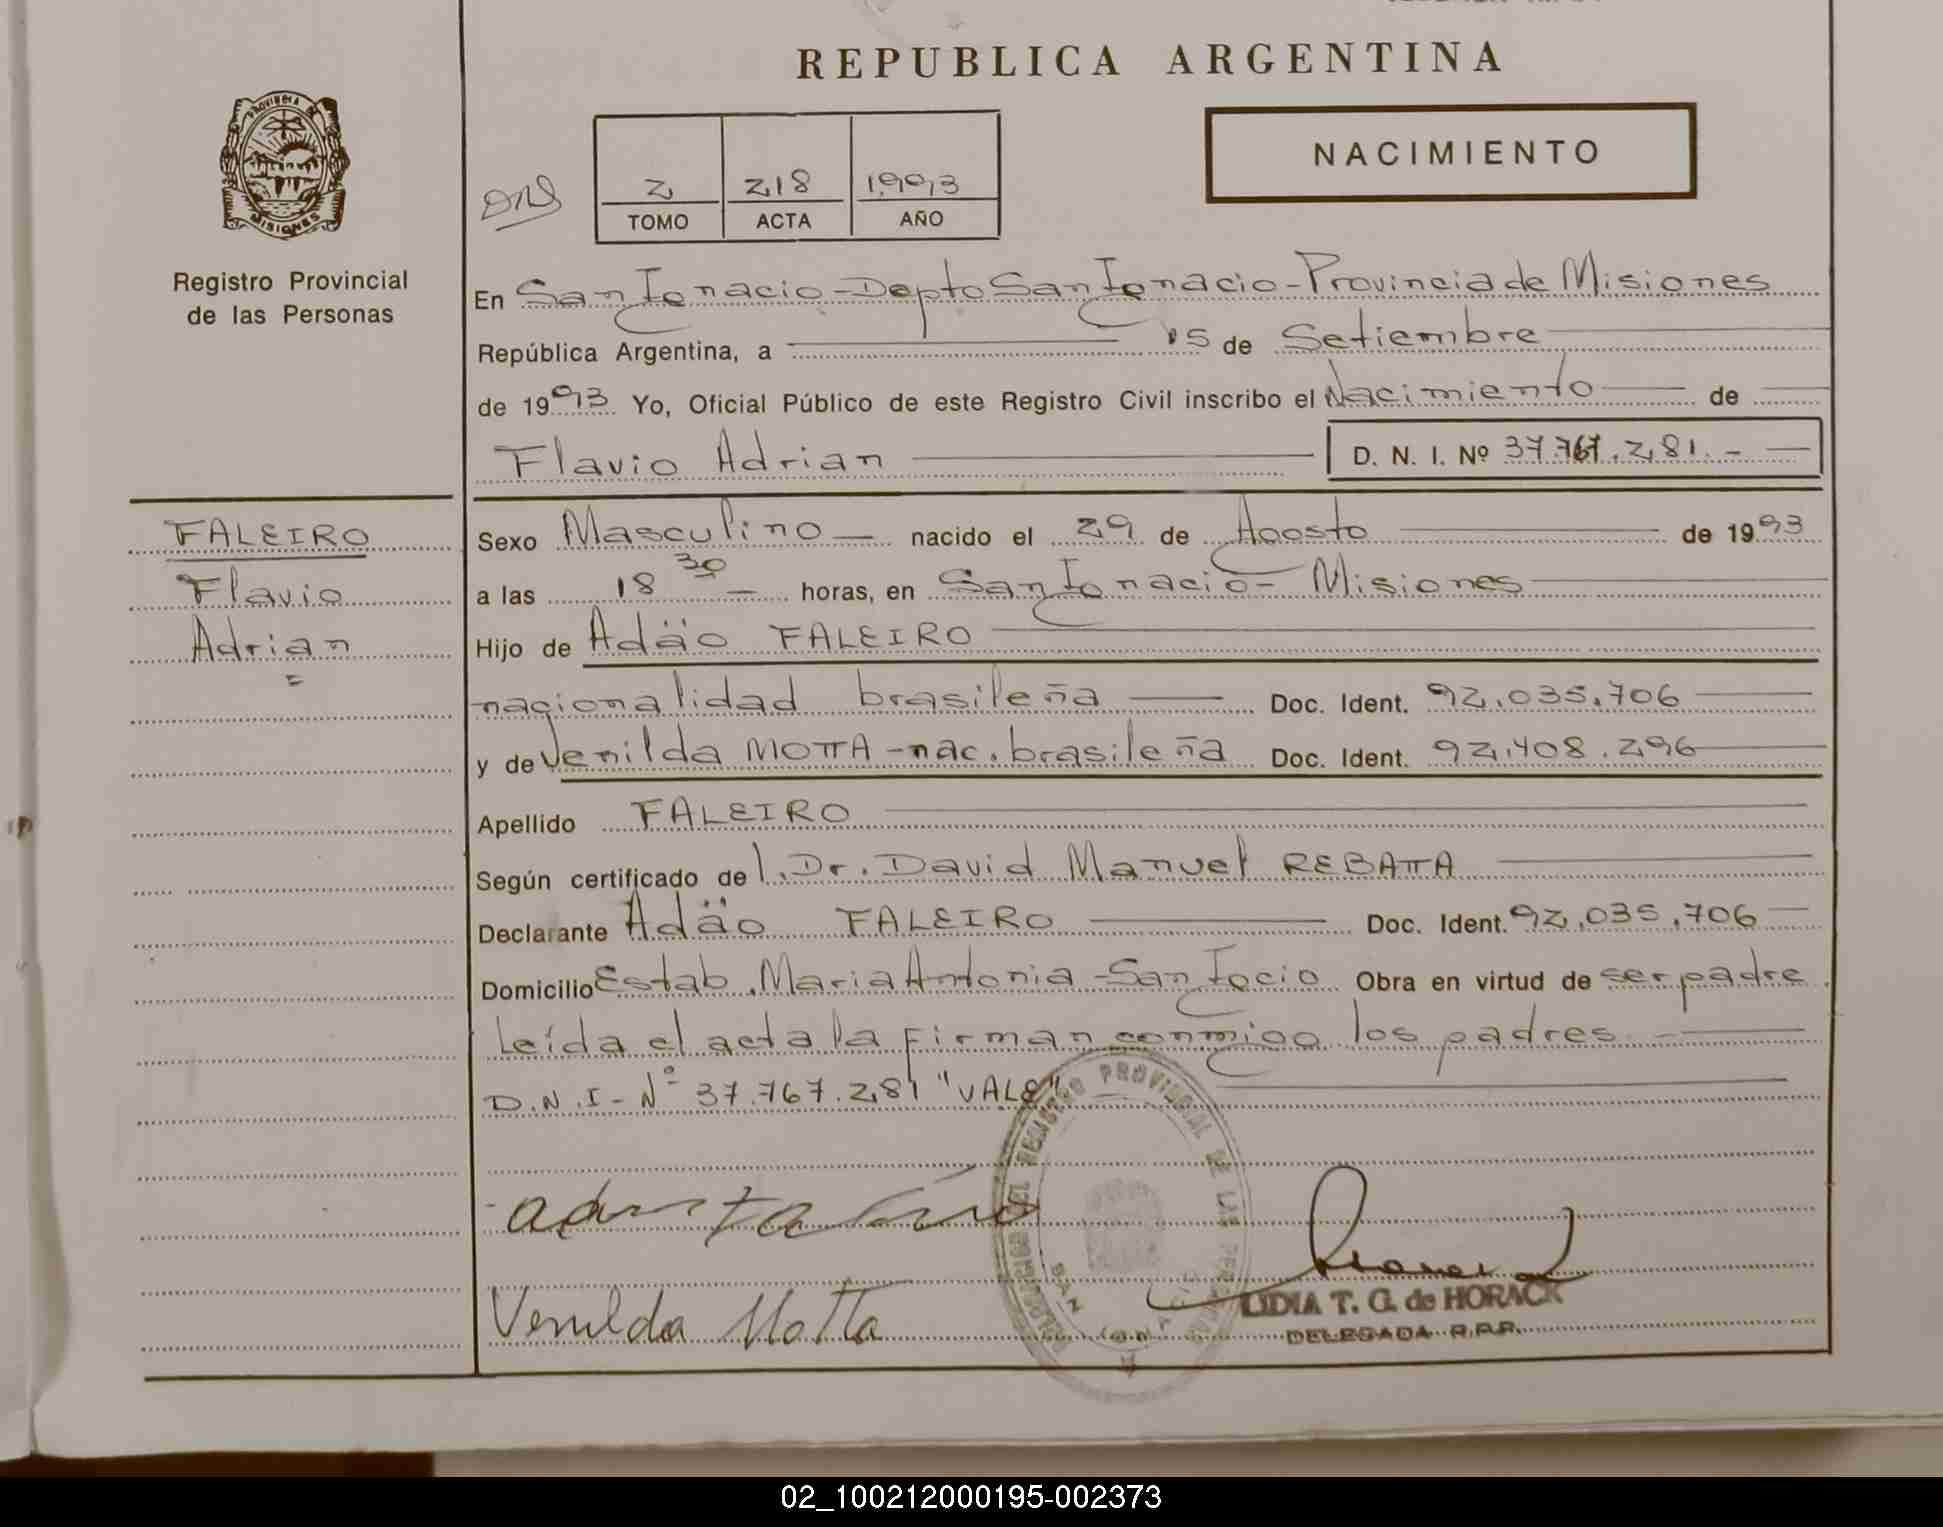 REPUBLICA ARGENTINA
PROVINCIA DE
MISIONES
Registro Provincial
de las Personas
2 218 1993
TOMO ACTA AÑO
NACIMIENTO
En San Ignacio - Depto San Ignacio - Provincia de Misiones
República Argentina, a 15 de Setiembre
de 1993 Yo, Oficial Público de este Registro Civil inscribo el Nacimiento de
Flavio Adrian D. N. I. Nº 37.767.281.-
FALEIRO
Flavio
Adrian
=
Sexo Masculino nacido el 29 de Agosto de 1993
a las 18 30 horas, en San Ignacio - Misiones
Hijo de Adäo FALEIRO
nacionalidad brasileña Doc. Ident. 92.035.706
y de Venilda MOTTA - nac. brasileña Doc. Ident. 92.408.296
Apellido FALEIRO
Según certificado de l. Dr. David Manuel REBATTA
Declarante Adäo FALEIRO Doc. Ident. 92.035.706
Domicilio Estab. Maria Antonia - San Igcio Obra en virtud de ser padre
Leída el acta la firman conmigo los padres.-
D.N.I - Nº 37.767.281 "VALE"
REGISTRO PROVINCIAL DE LAS PERSONAS
SAN IGNACIO
Venilda Motta
LIDIA T. G. de HORACK
DELEGADA R.P.P.
02_100212000195-002373